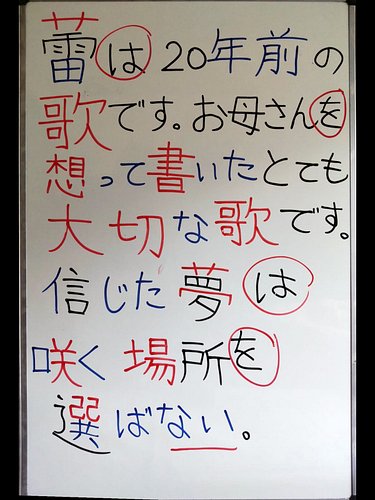 蕾は20年前の
歌です。お母さんを
想って書いたとても
大切な歌です。
信じた夢は
咲く場所を
選ばない。